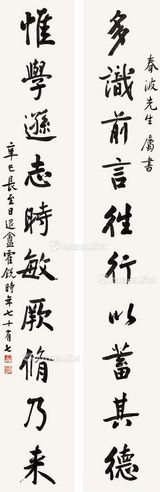 春波先生屬書
多識前言往行以蓄其德
惟學遜志時敏厥脩乃来
辛巳長至日退盦霍銳時年七十有七